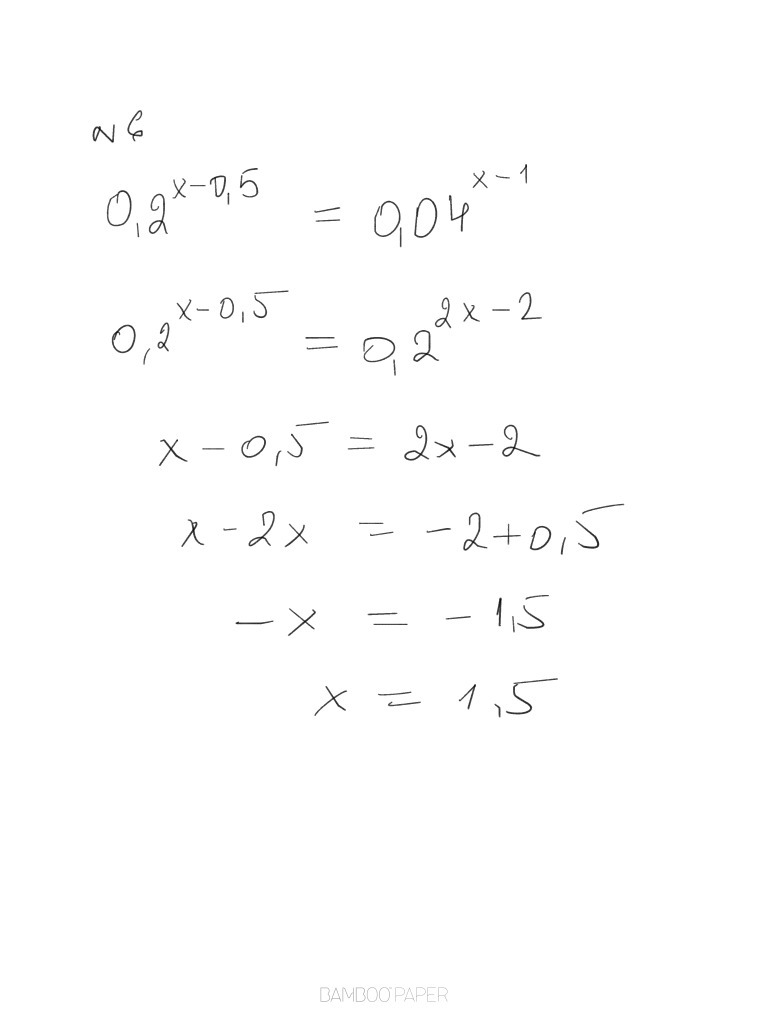 № 6
0,2^{x-0,5} = 0,04^{x-1}
0,2^{x-0,5} = 0,2^{2x-2}
x - 0,5 = 2x - 2
x - 2x = -2 + 0,5
-x = -1,5
x = 1,5
BAMBOO PAPER